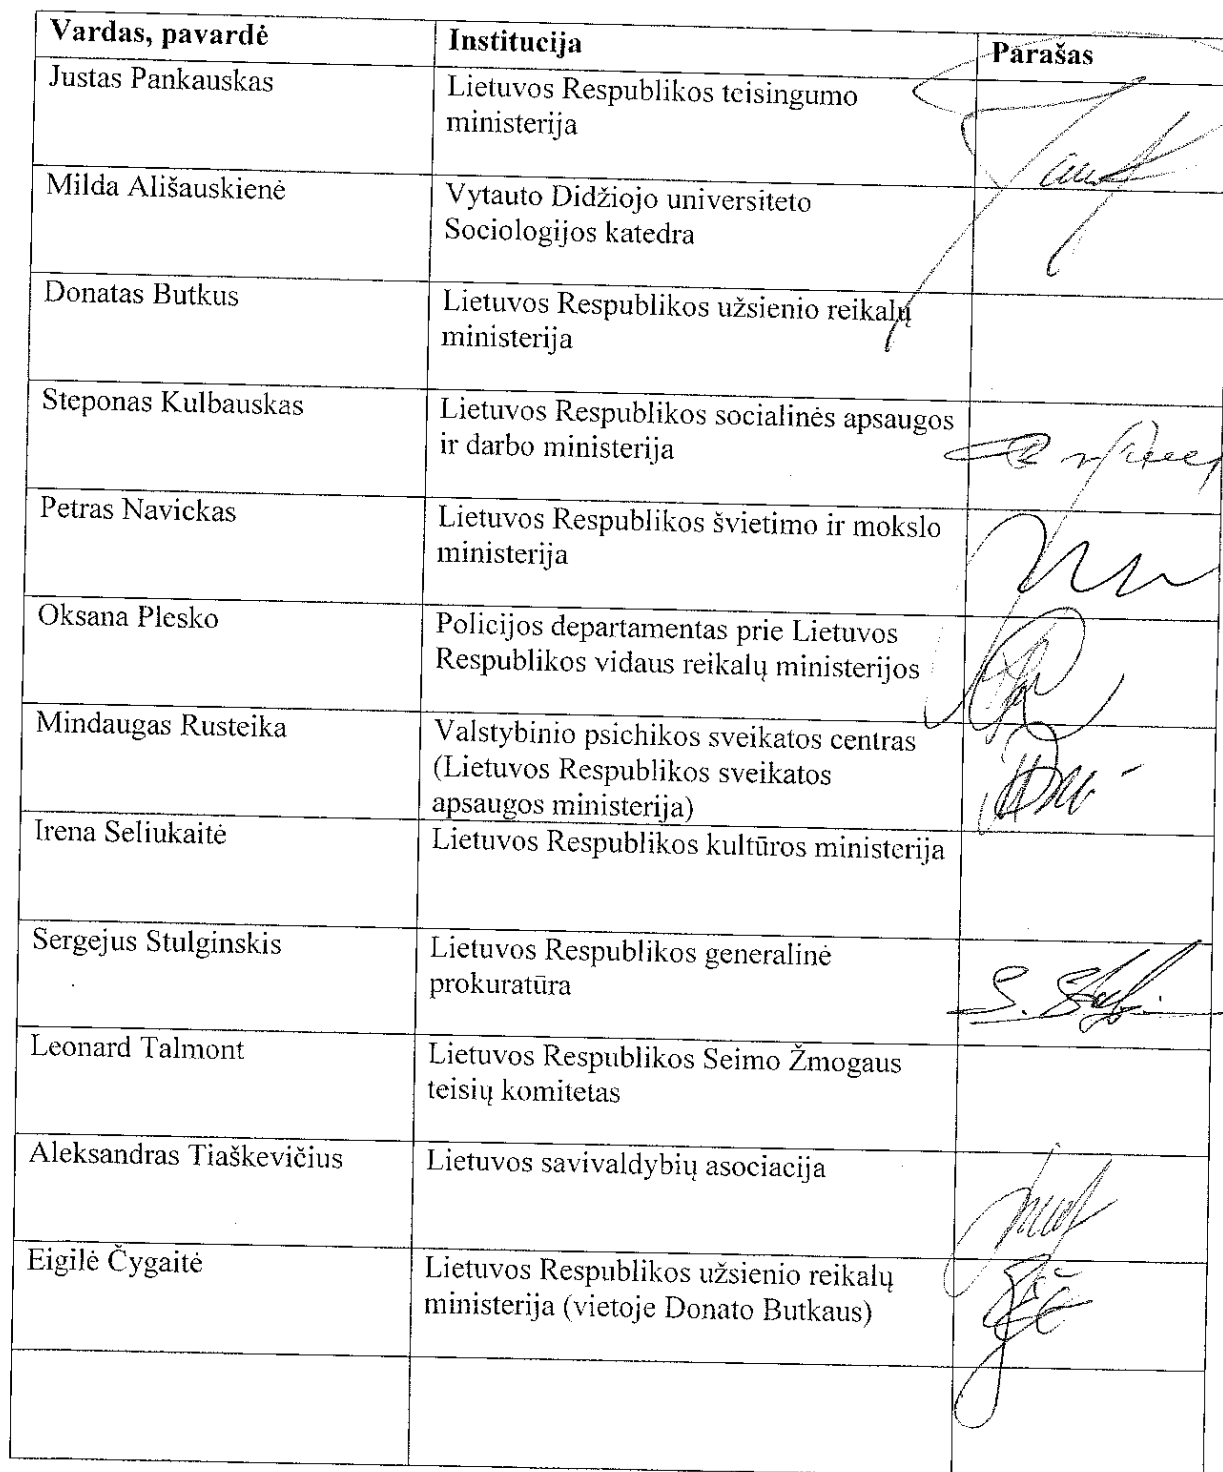 Vardas, pavardė
Institucija
Parašas
Justas Pankauskas
Lietuvos Respublikos teisingumo
ministerija
Milda Ališauskienė
Vytauto Didžiojo universiteto
Sociologijos katedra
Donatas Butkus
Lietuvos Respublikos užsienio reikalų
ministerija
Steponas Kulbauskas
Lietuvos Respublikos socialinės apsaugos
ir darbo ministerija
Petras Navickas
Lietuvos Respublikos švietimo ir mokslo
ministerija
Oksana Plesko
Policijos departamentas prie Lietuvos
Respublikos vidaus reikalų ministerijos
Mindaugas Rusteika
Valstybinio psichikos sveikatos centras
(Lietuvos Respublikos sveikatos
apsaugos ministerija)
Irena Seliukaitė
Lietuvos Respublikos kultūros ministerija
Sergejus Stulginskis
Lietuvos Respublikos generalinė
prokuratūra
Leonard Talmont
Lietuvos Respublikos Seimo Žmogaus
teisių komitetas
Aleksandras Tiaškevičius
Lietuvos savivaldybių asociacija
Eigilė Čygaitė
Lietuvos Respublikos užsienio reikalų
ministerija (vietoje Donato Butkaus)